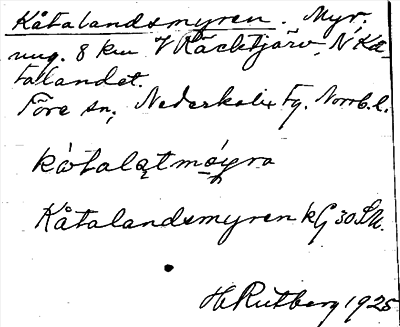 Kåtalandsmyren. Myr,
ung. 8 km V Räcktjärv, N Kå-
tallandet.
Töre sn, Nederkalix Fg. Norrb. l.
kåtalətmøyra
Kåtalandsmyren kG 30
H Rutberg 1925